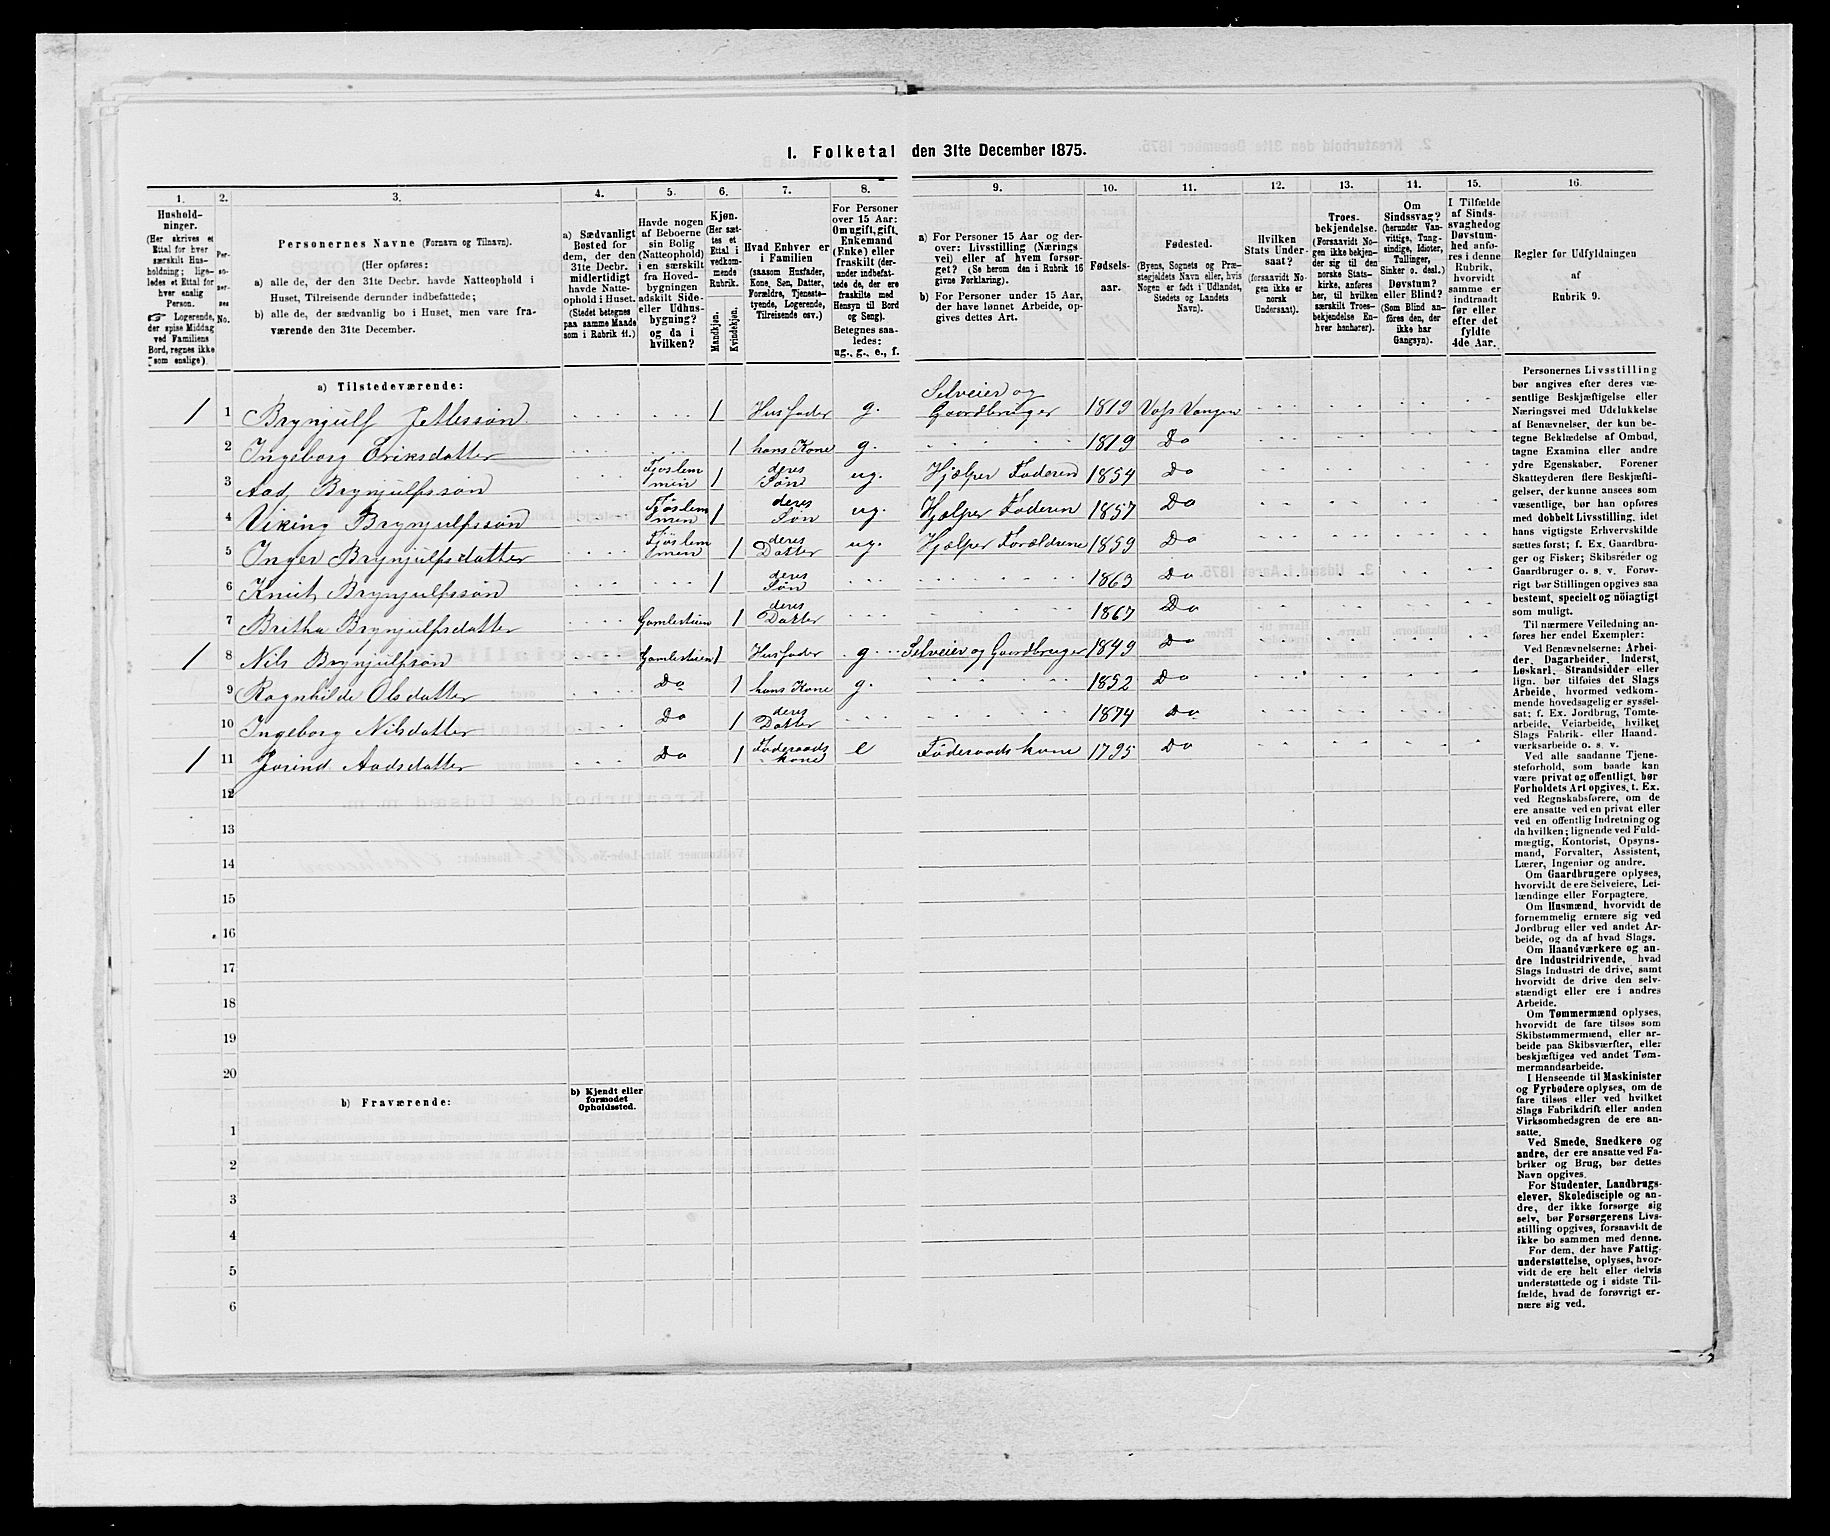 I. Folketal den 31te December 1875.
1. 2. 3. 4. 5. 6. 7. 8. 9. 10. 11. 12. 13. 14. 15. 16.
Hushold-
ninger.
(Her skrives et
Ettal for hver
særskilt Hus-
holdning; lige-
ledes et Ettal for
hver enslig
Person.
☞ Logerende,
der spise Middag
ved Familiens
Bord, regnes ikke
som enslige).
Per-
so-
ner-
nes
No.
Personernes Navne (Fornavn og Tilnavn).
(Her opføres:
a) alle de, der den 31te Decbr. havde Natteophold i
Huset, Tilreisende derunder indbefattede;
b) alle de, der sædvanlig bo i Huset, men vare fra-
værende den 31te December.
a) Sædvanligt
Bosted for
dem, der den
31te Decbr.
midlertidigt
havde Natte-
ophold i Huset.
(Stedet betegnes
paa samme Maade
som i Rubrik 11.)
Havde nogen
af Beboerne
sin Bolig
(Natteophold)
i en særskilt
fra Hoved-
bygningen
adskilt Side-
eller Udhus-
bygning?
og da i
hvilken?
Kjøn.
(Her sæt-
tes et
Ettal i
vedkom-
mende
Rubrik.
Mandkjøn.
Kvindekjøn.
Hvad Enhver er
i Familien
(saasom Husfader,
Kone, Søn, Datter,
Forældre, Tjeneste-
tyende, Logerende,
Tilreisende osv.)
For Personer
over 15 Aar:
Om ugift, gift,
Enkemand
(Enke) eller
fraskilt (der-
under indbefat-
tede de, der ere
fraskilte med
Hensyn til Bord
og Seng).
Betegnes saa-
ledes:
ug., g., e., f.
a) For Personer 15 Aar og der-
over: Livsstilling (Nærings
vei) eller af hvem forsør-
get? (Se herom den i Rubrik 16
givne Forklaring).
b) For Personer under 15 Aar,
der have lønnet Arbeide, op-
gives dettes Art.
Fødsels-
aar.
Fødested.
(Byens, Sognets og Præ-
stegjeldets Navn eller, hvis
Nogen er født i Udlandet,
Stedets og Landets
Navn).
Hvilken
Stats Under-
saat?
(forsaavidt No-
gen ikke er
norsk
Undersaat).
Troes-
bekjendelse.
(Forsaavidt No-
gen ikke bekjen-
der sig til den
norske Stats-
kirke, anføres
her, til hvilken
særskilt Troes-
bekjendelse En-
hver henhører).
Om
Sindssvag?
(herunder Van-
vittige, Tung-
sindige, Idioter,
Tullinger,
Sinker o. desl.)
Døvstum?
eller Blind?
(Som Blind an-
føres den, der
ikke har
Gangsyn).
I Tilfælde
af Sinds-
svaghed og
Døvstum-
hed anfø-
res i denne
Rubrik,
hvorvidt
samme er
indtraadt
før eller
efter det
fyldte
4de Aar.
Regler for Udfyldningen
af
Rubrik 9.
a) Tilstedeværende:
1 1 Brynjulf Jetlessøn 1 Husfader g. Selveier og Gaardbruger 1819 Voss Vangen
2 Ingeborg Eriksdatter 1 hans Kone g. 1819 Do
3 Aad Brynjulfssøn Fjøslem men 1 deres Søn ug. Hjælper Faderen 1854 Do
4 Viking Brynjulfssøn Fjøslem men 1 deres Søn ug. Hjælper Faderen 1857 Do
5 Inger Brynjulfsdatter Fjøslem men 1 deres Datter ug. Hjælper Forældrene 1859 Do
6 Knut Brynjulfssøn 1 deres Søn 1863 Do
7 Britha Brynjulfsdatter Gamlestuen 1 deres Datter 1867 Do
1 8 Nils Brynjulfsøn Gamlestuen 1 Husfader g. Selveier og Gaardbruger 1849 Do
9 Ragnhilde Olsdatter Do 1 hans Kone g. 1852 Do
10 Ingeborg Nilsdatter Do 1 deres Datter 1874 Do
1 11 Jorind Aadsdatter Do 1 Føderaads kone e Føderaads kone 1795 Do
12
13
14
15
16
17
18
19
20
b) Fraværende:
b) Kjendt eller
formodet
Opholdssted.
1
2
3
4
5
6
Personernes Livsstilling
bør angives efter deres væ-
sentlige Beskjæftigelse eller
Næringsvei med Udelukkelse
af Benævnelser, der kun be-
tegne Beklædelse af Ombud,
tagne Examina eller andre
ydre Egenskaber. Forener
Skatteyderen flere Beskjæfti-
gelser, der kunne ansees som
væsentlige, bør han opføres
med dobbelt Livsstilling, idet
hans vigtigste Erhvervskilde
sættes først; f. Ex. Gaardbru-
ger og Fisker; Skibsreder og
Gaardbruger o. s. v. Forøv-
rigt bør Stillingen opgives saa
bestemt, specielt og nöiagtigt
som muligt.
Til nærmere Veiledning an-
føres her endel Exempler:
Ved Benævnelserne: Arbei-
der, Dagarbeider, Inderst,
Løskarl, Strandsidder eller
lign. bør tilføies det Slags
Arbeide, hvormed vedkom-
mende hovedsagelig er syssel-
sat; f. Ex. Jordbrug, Tomte-
arbeide, Veiarbeide, hvilket
Slags Fabrik- eller Haand-
værksarbeide o. s. v.
Ved alle saadanne Tjene-
steforhold, som baade kan
være privat og offentligt, bør
Forholdets Art opgives, t. Ex.
ved Regnskabsførere, om de
ere ansatte ved en privat eller
ved en offentlig Indretning og
da hvilken; lignende ved Fuld-
mægtig, Kontorist, Opsyns-
mand, Forvalter, Assistent,
Lærer, Ingeniør og andre.
Om Gaardbrugere oplyses,
hvorvidt de ere Selveiere, Lei-
lændinge eller Forpagtere.
Om Husmænd, hvorvidt de
fornemmelig ernære sig ved
Jordbrug eller ved andet Ar-
beide, og da af hvad Slags.
Om Haandværkere og an-
dre Industridrivende, hvad
Slags Industri de drive, samt
hvorvidt de drive den selv-
stændigt eller ere i andres
Arbeide.
Om Tømmermænd oplyses,
hvorvidt de fare tilsøs som
Skibstømmermænd, eller ar-
beide paa Skibsværfter, eller
beskjæftiges ved andet Tøm-
mermandsarbeide.
I Henseende til Maskinister
og Fyrbødere oplyses, om de
fare tilsøs eller ved hvilket
Slags Fabrikdrift eller anden
Virksomhedsgren de ere an-
satte.
Ved Smede, Snedkere og
andre, der ere ansatte ved Fa-
briker og Brug, bør dettes
Navn opgives.
For Studenter, Landbrugs-
elever, Skoledisciple og an-
dre, der ikke forsørge sig
selv, bør Forsørgerens Livs-
stilling opgives, forsaavidt de
ikke bo sammen med denne.
For dem, der have Fattig-
understøttelse, oplyses, hvor-
vidt de ere helt eller delvis
understøttede og i sidste Til-
fælde, hvad de forøvrigt er-
nære sig ved.